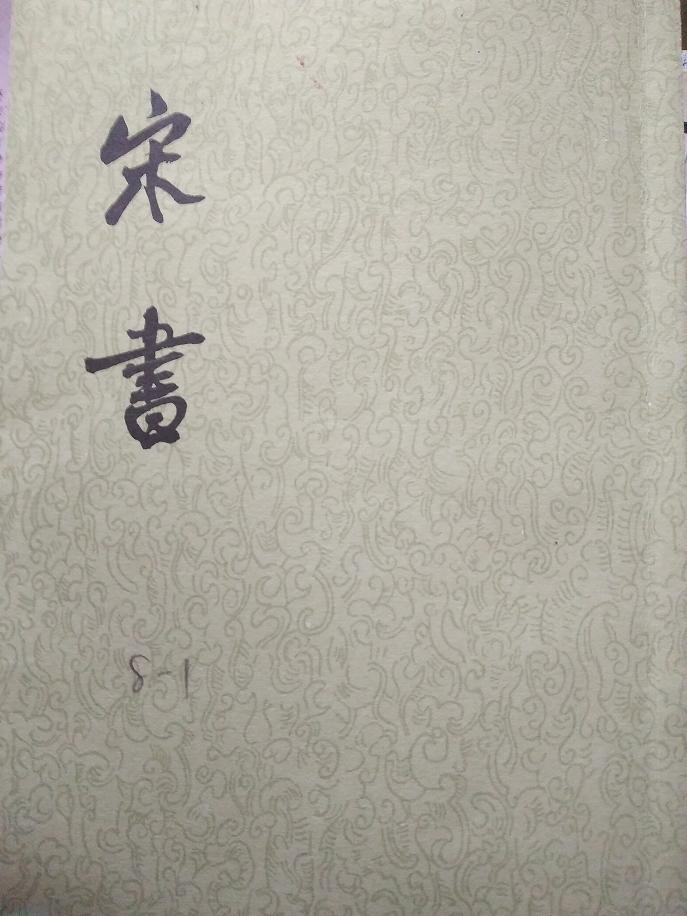 宋書
8-1